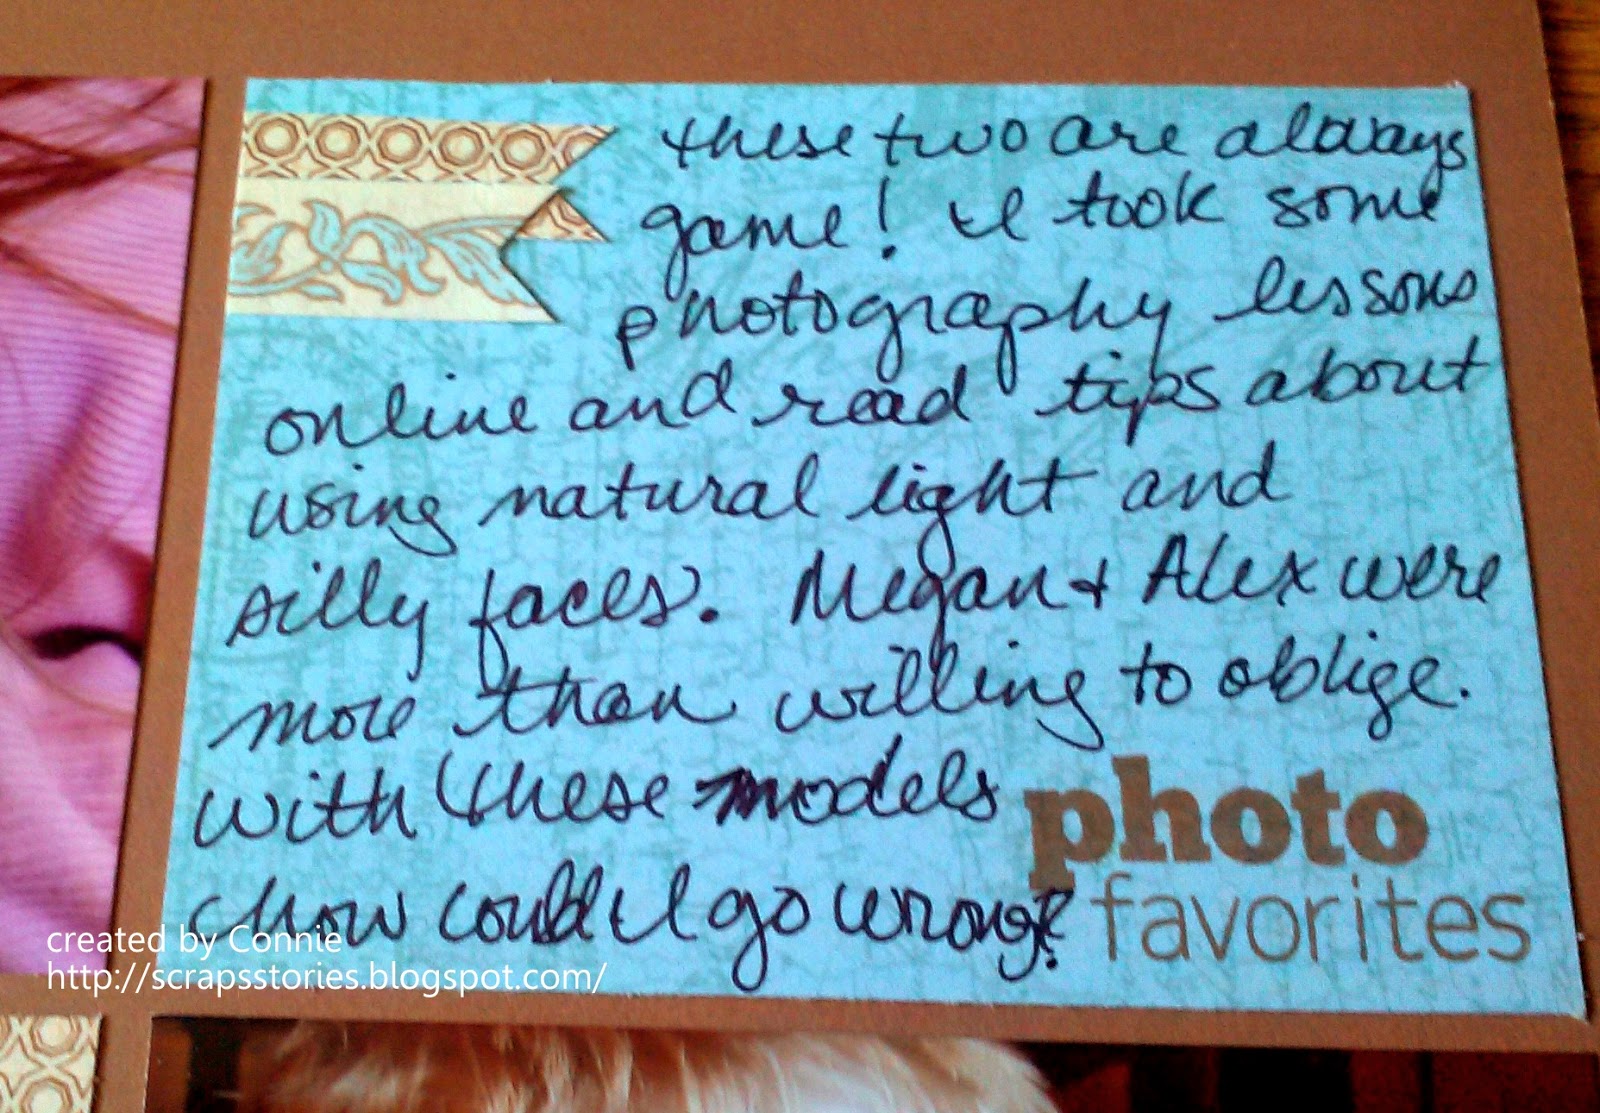 these two are always
game! I took some
photography lessons
online and read tips about
using natural light and
silly faces. Megan + Alex were
more than willing to oblige.
with these models
how could I go wrong?
photo
favorites
created by Connie
http://scrapsstories.blogspot.com/